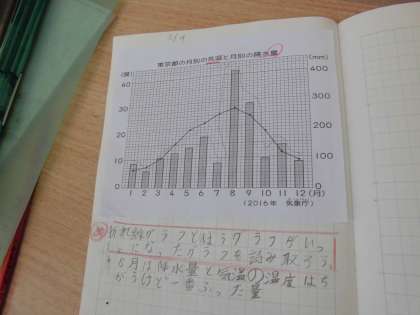 東京都の月別の気温と月別の降水量
(度) (mm)
40 400
30 300
20 200
10 100
0 1 2 3 4 5 6 7 8 9 10 11 12 (月) 0
(2016年 気象庁)
折れ線グラフとぼうグラフがいっ
しょになったグラフを読み取ろう。
8月は降水量と気温の温度はち
がうけど一番ふった量